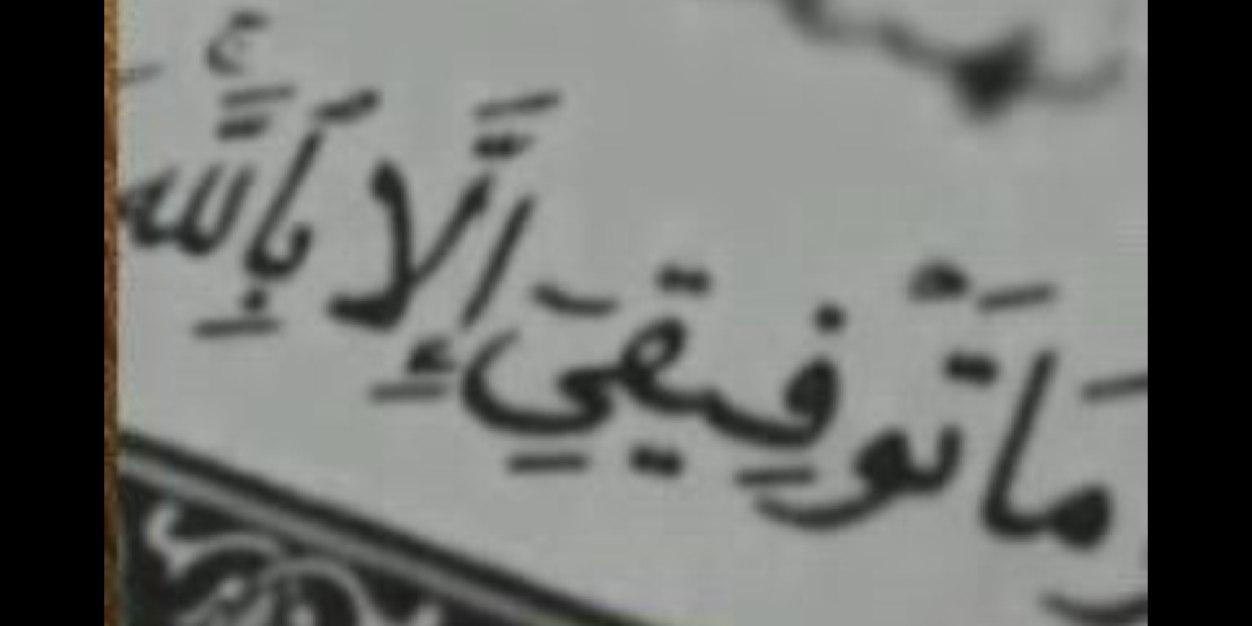 وَمَا تَوْفِيقِيٓ إِلَّا بِٱللَّهِۚ